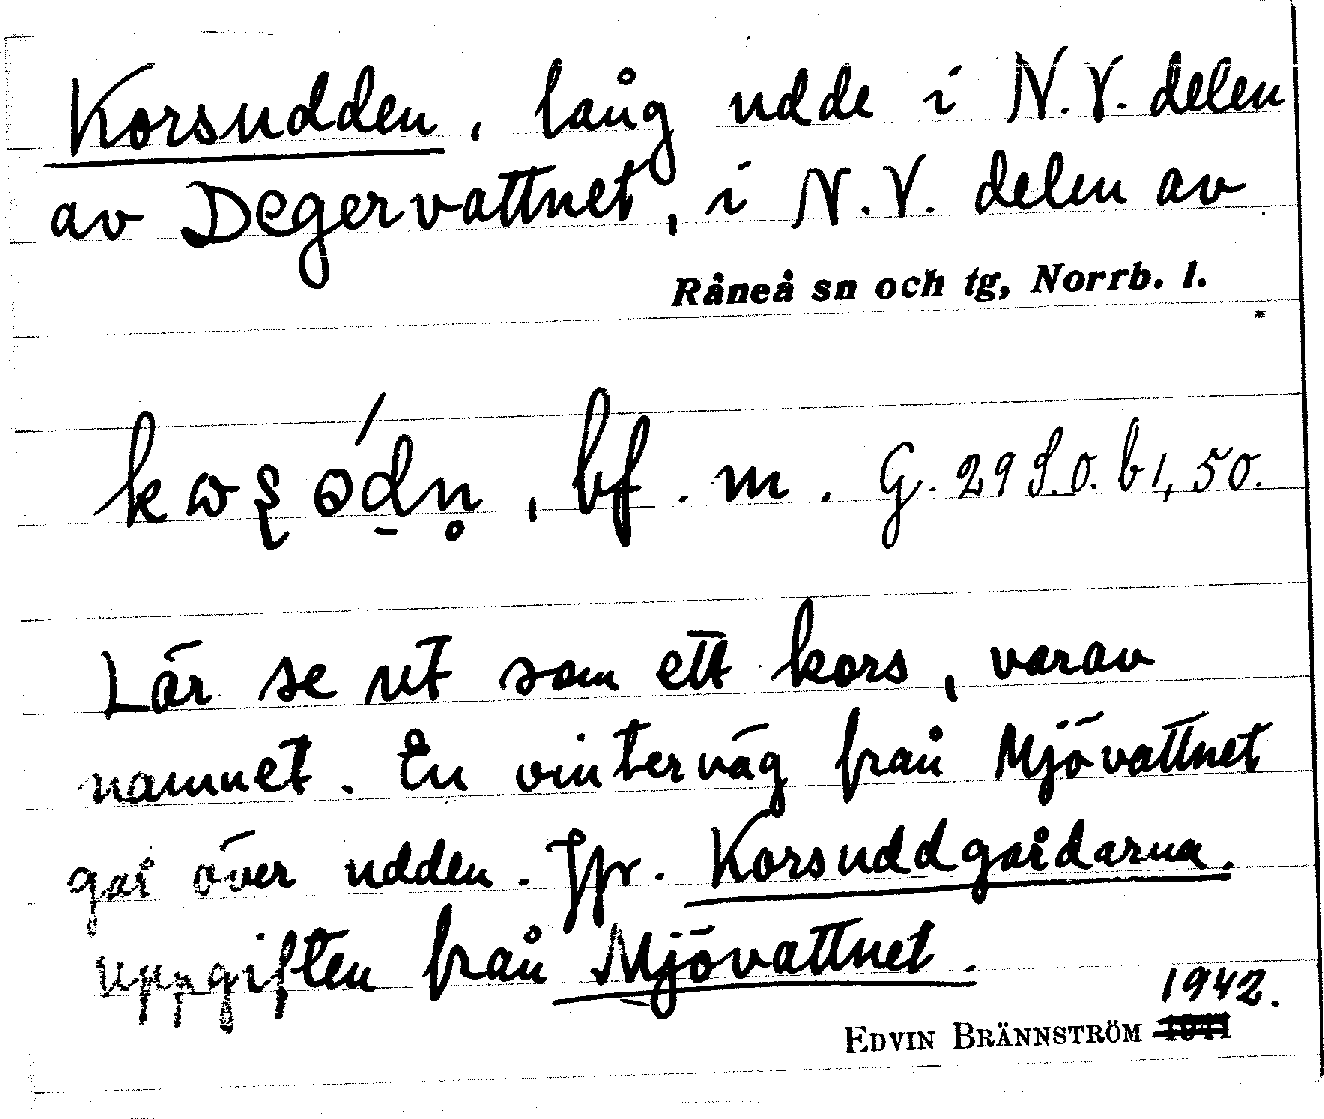 Korsudden, lång udde i N.V. delen
av Degervattnet, i N.V. delen av
Råneå sn och tg, Norrb. l.
bf. m. G. 29 S.O. b 1, 50.
Lär se ut som ett kors, varav
namnet. En vinterväg från Mjövattnet
går över udden. Jfr. Korsuddgårdarna.
uppgiften från Mjövattnet.
1942.
EDVIN BRÄNNSTRÖM 1941